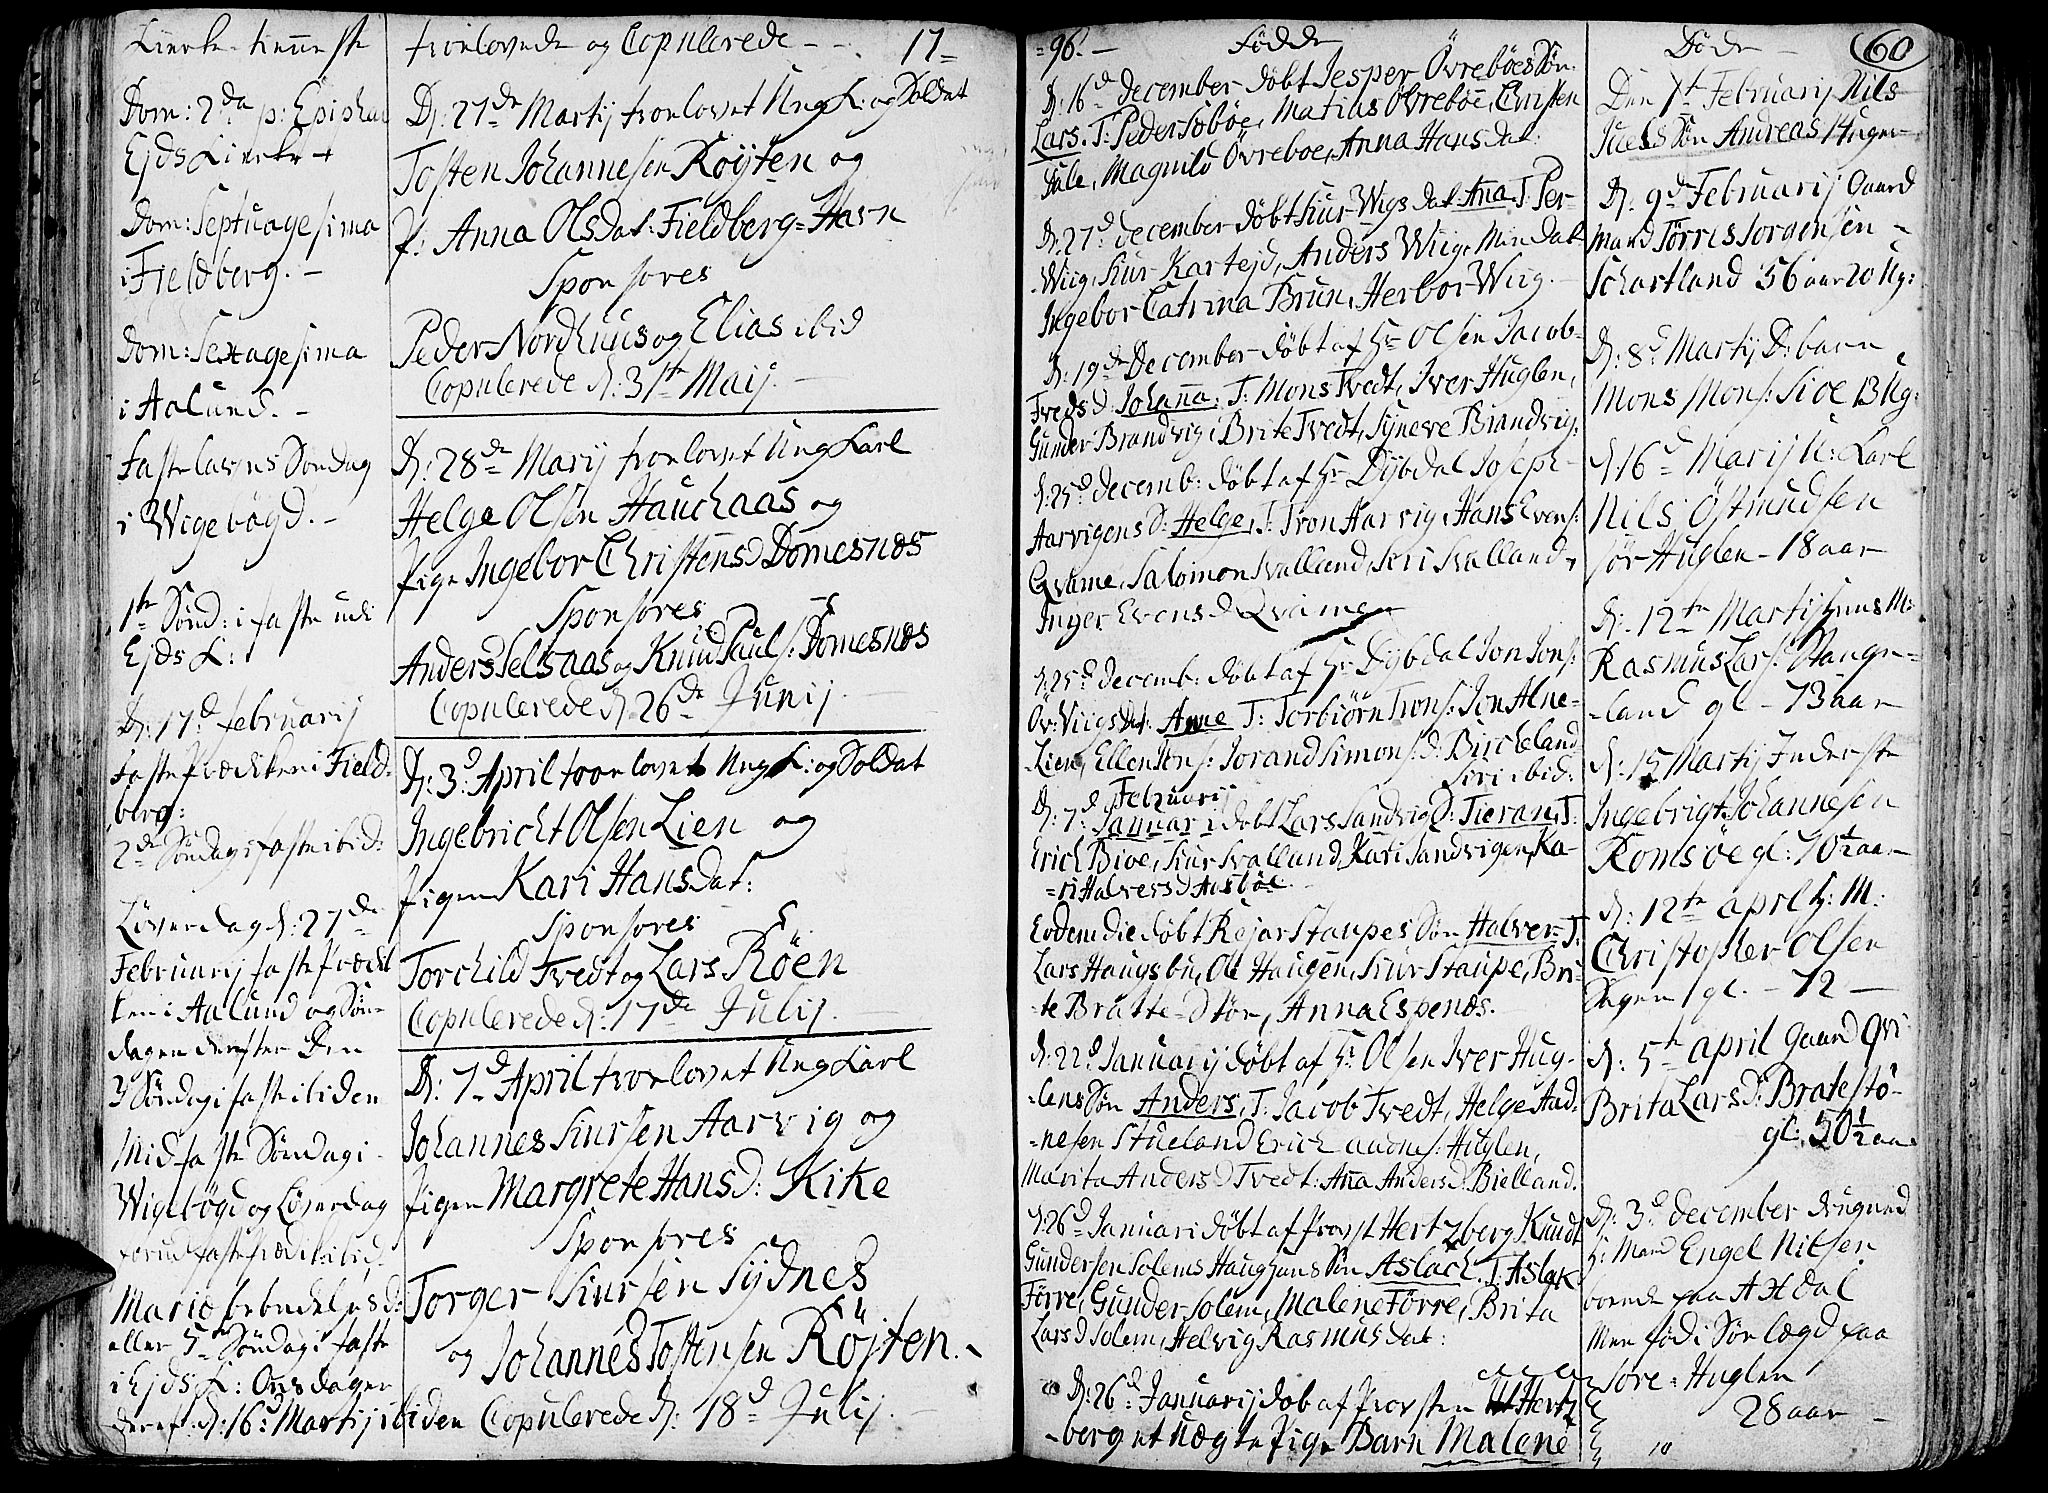 Kierke-tieneste
Dom: 2da p: Epiphan
Ejds Kierke
Dom: Septuagesima
i Fieldberg. -
Dom: Sexagesima
i Aalund. -
Fastelavns Søndag
i Wigebögd. -
1te Sönd: i faste udi
Ejds K:
D: 17d februarij
fasteprædiken i Field-
berg:
2de Söndag i faste ibid:
Löverdag d: 27de
Februarij fasteprædi
ken i Aalund og Søn-
dagen derefter Den
3 Söndag i faste ibiden
Midfaste Søndag i
Wigebögd og Löverdag
forud fasteprædik ibid.
Mariæ bebudelses d:
eller 5te Söndag i faste
i Ejds K: Onsdagen
deref: d: 16d Martij ibiden
troelovede og Copulerede - - 17-
D: 27de Martij troelovet Ung K: og Soldat
Tosten Johannesen Röyten og
P: Anna Olsdat: Fieldberg-Havn
Sponsores
Peder Nordhuus og Elias ibid
Copulerede d: 31te Maij. -
D: 28de Marij troelovet Ung Karl
Helge Olsen Hauchaas og
Pige Ingebor Christensd Domesnæs
Sponsores
Anders Selsaas og Knud Pauls: Domesnæs
Copulerede d. 26de Junij. -
D: 3d April troelovet Ung K: og Soldat
Ingebricht Olsen Lien og
Pigen Kari Hansdat:
Sponsores
Torchild Tvedt og Lars Röen
Copulerede d: 17de Julij. -
D: 7d April troelovet Ung Karl
Johannes Siursen Aarvig og
Pigen Margrete Hansd: Kike
Sponsores
Torger Siursen Sÿdnes
og Johannes Tostensen Röjten. -
Copulerede d: 18d Julij. -
=96. - Födde
D: 16d December döbt Jesper Övreböes Sön
Lars. T: Peder Söböe, Matias Övreböe, Cristen
Dale, Magnild Övreboe, Anna Hansdat.
D: 27d December döbt Siur Wigs dat Ana. T: Per-
Wiig, Siur Kartejd, Anders Wiig, Min dat
Ingebor Catrina Brun, Herbor Wiig. -
D: 19de December döbt af Hr Olsen Jacob-
Tveds d: Johanna: T: Mons Tvedt, Iver Huglen,
Gunder Brandvig, Brite Tvedt, Syneve Brandvig.
d: 25d Decemb: döbt af Hr Dybdal Joseph-
Aarvigens d: Helge, T: Tron Aarvig, Hans Evens:
Qvame, Salomon Svalland, Siri Svalland,
Inger Evensd Qvame
d: 25d Decemb: döbt af Hr Dybdal Jon Jons:
Öv: Viigs Dat: Anne T: Torbiörn Trons: Jon Alne-
Lien, Ellen Jons: Jorand Simons: d: Bircheland
Siri ibid:
Februarij
D: 7d Januari döbt Lars Sandvigs D: Tieran, T:
Erich Bioe, Siur Svalland, Kari Sandvigen, Ka-
=ri Halversd Aasböe
Eodem die döbt Rejar Staupes Sön Halver= T:
Lars Haugsbu, Ole Haugen, Siur Staupe, Bri-
-te Bratte-Stör, Anna Espenæs. -
d: 22d Januarij döbt af Hr Olsen Iver Hug-
-lens Sön Anders, T: Jacob Tvedt, Helge Aad-
=nesen Stueland Erich Aadnes: Huglen,
Marita Andersd Tvedt: Ana Andersd. Bielland.
d: 26d Januari döbt af Provst Hertzberg Knudt
Gundersen Solems Haugians Sön Aslach. T: Aslak
Förre, Gunder Solem, Malene Förre, Brita
Larsd Solem, Helvig Rasmusdat:
D: 26d Januarij döb af Provsten Hertz
-berg et uægte Pige Barn Malene
Döde - 60
Den 7t Februarij Nils
Juels Sön Andreas 14 uger
D: 9d Februarij Gaard
mand Törris Jorgensen -
Schartland 56 aar 20 Ug:
d: 8d Martij D: barn
Mons Mons: Sioe 13 Ug:
d. 16d Marij U: Karl
Nils Östmudsen
sör Huglen - 18 aar
D: 12te Martij Huus M:
Rasmus Lars: Nauge-
-land gl - 73 aar
d: 15 Martij Inderste
Ingebrigt Johannesen
Romsöe gl: 70½ aar
d: 12te april H: M:
Christopher Olsen
gl. - 72 -
d: 5te april Gaard Qvi
Brita Larsd: Bratestö-
gl: 50½ aar
d: 3d December druqned
H: Mand Engel Nilsen
boende paa Axdal
men födt i Sör lægd paa
Söre-Huglen
28 aar -
10